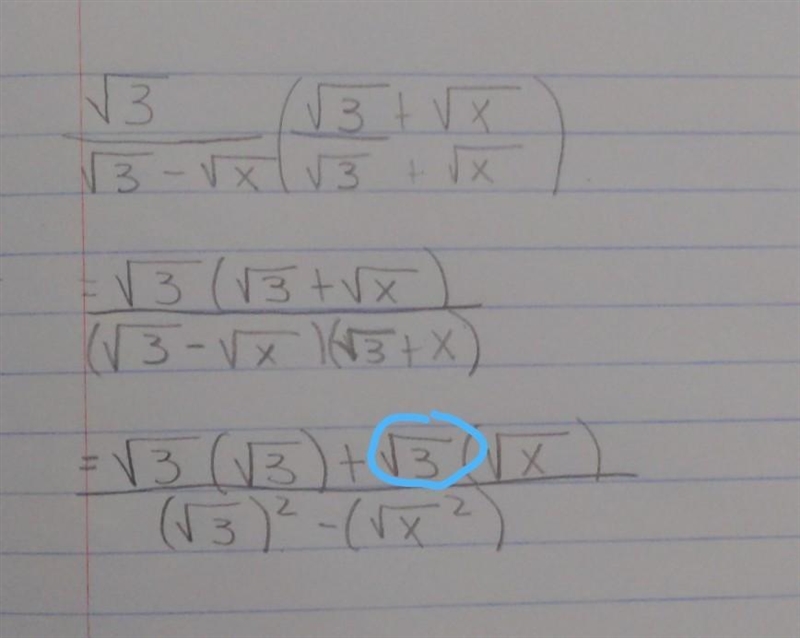 √3 / (√3 − √x) ( (√3 + √x) / (√3 + √x) )
= √3 (√3 + √x) / (√3 − √x)(√3 + x)
= √3 (√3) + √3 (√x) / (√3)² − (√x ²)